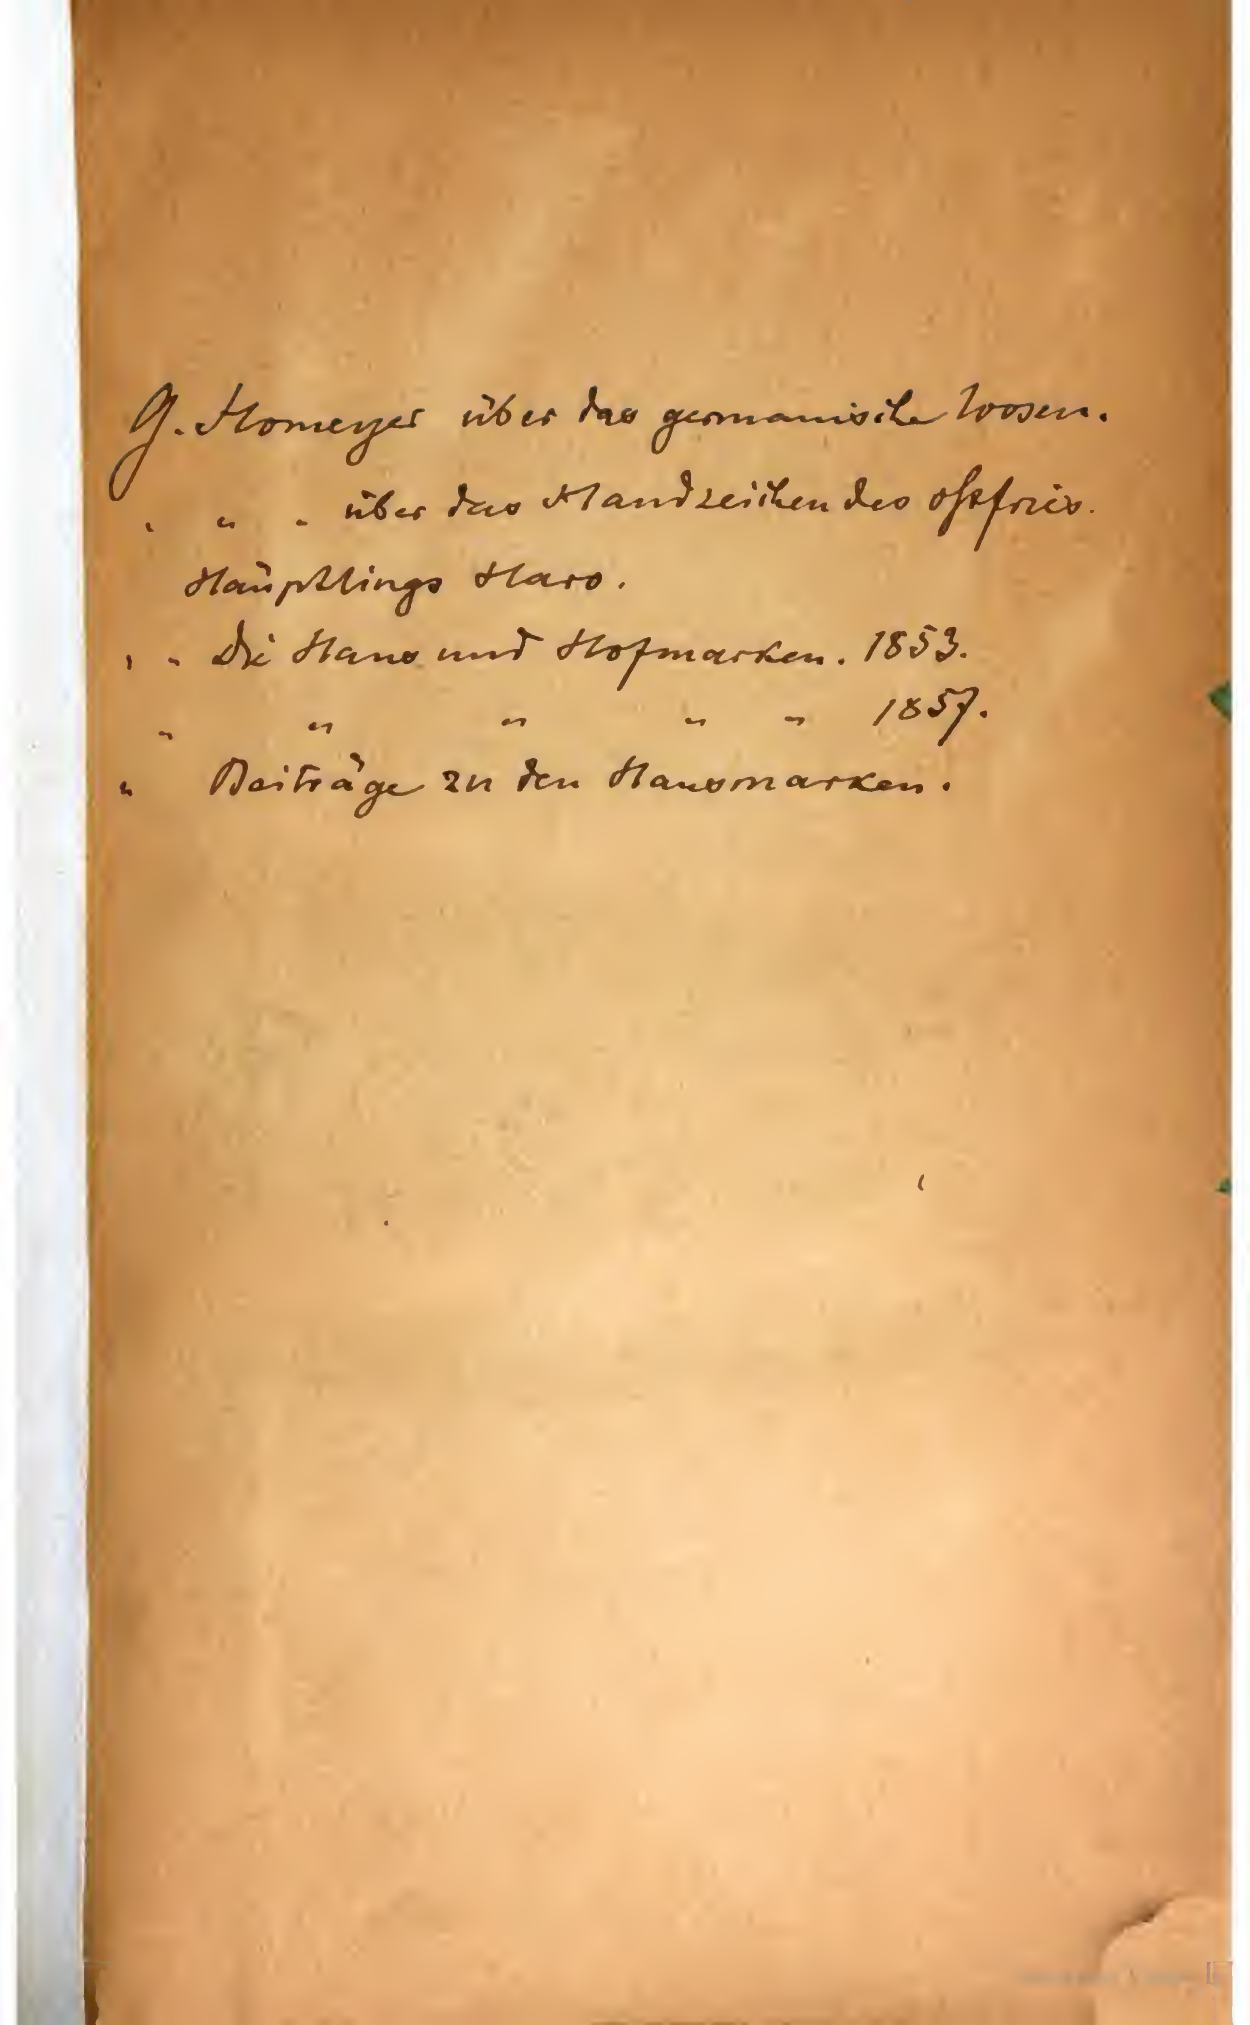 G. Homeyer über das germanische Loosen.
" " " über das Handzeichen des ostfries.
Häuptlings Haro.
" " Die Haus und Hofmarken. 1853.
" " " " " 1857.
" Beiträge zu den Hausmarken.